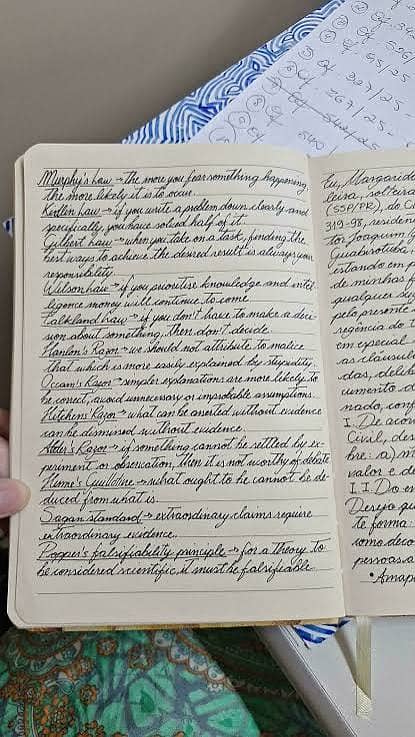 Murphy's Law → the more you fear something happening,
the more likely it is to occur.
Kidlin Law → if you write a problem down clearly and
specifically, you have solved half of it.
Gilbert Law → when you take on a task, finding the
best ways to achieve the desired result is always your
responsibility.
Wilson Law → if you prioritise knowledge and intel-
ligence money will continue to come.
Falkland Law → if you don't have to make a deci-
sion about something, then don't decide.
Hanlon's Razor → we should not attribute to malice
that which is more easily explained by stupidity.
Occam's Razor → simpler explanations are more likely to
be correct, avoid unnecessary or improbable assumptions.
Hitchens' Razor → what can be asserted without evidence
can be dismissed without evidence.
Alder's Razor → if something cannot be settled by ex-
periment or observation, then it is not worthy of debate.
Hume's Guillotine → what ought to be cannot be de-
duced from what is.
Sagan standard → extraordinary claims require
extraordinary evidence.
Popper's falsifiability principle → for a theory to
be considered scientific it must be falsifiable.
Eu, Margarida
leira, solteira
(SSP/PR), do C
319-98, residen
tor Joaquim
Guabirotuba
estando em p
de minhas f
qualquer su
pelo presente
regência do
em especial
as cláusula
das, delib
cumento a
nado, conf
I. De acor
Civil, des
bre: a) m
valor e d
I.I. Do en
Desejo qu
te forma
como deco
pessoas a
• Amap
327/25
267/25